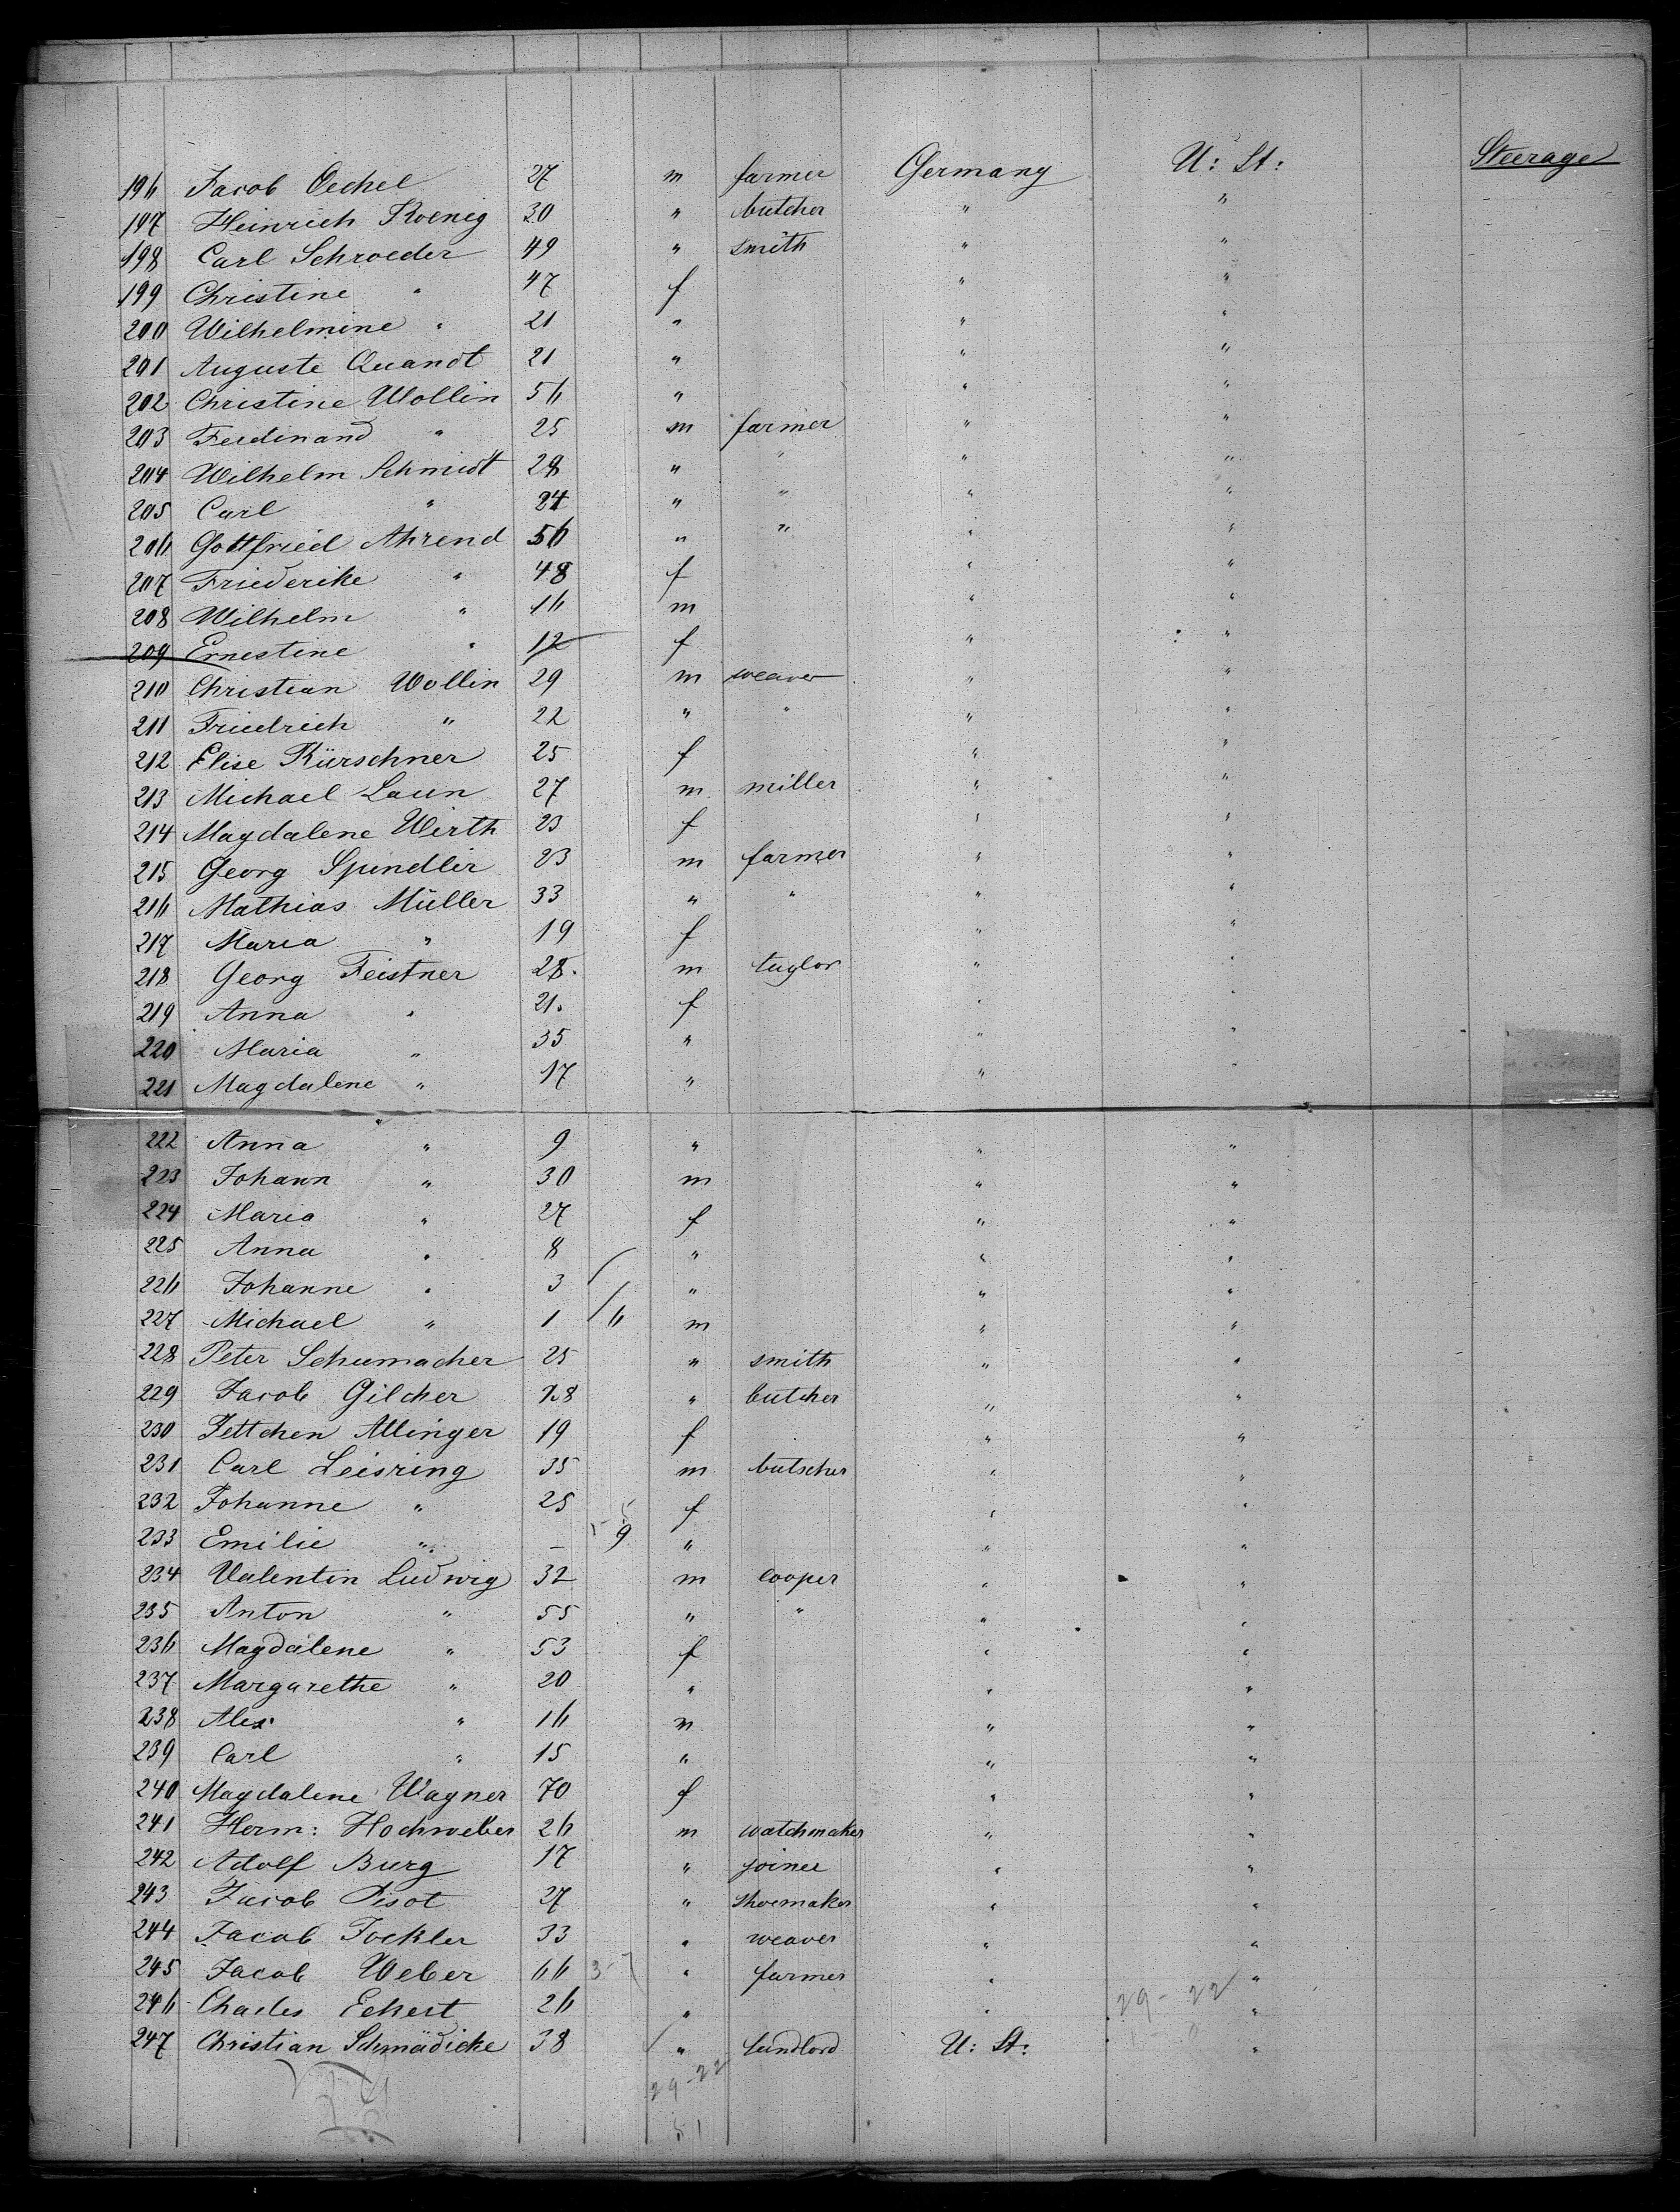 Steerage
196 Jacob Oechel 27 m farmer Germany U: St:
197 Heinrich Koenig 30 " butcher " "
198 Carl Schroeder 49 " smith " "
199 Christine " 47 f " "
200 Wilhelmine " 21 " " "
201 Auguste Quandt 21 " " "
202 Christine Wollin 56 " " "
203 Ferdinand " 25 m farmer " "
204 Wilhelm Schmidt 28 " " " "
205 Carl " 24 " " " "
206 Gottfried Ahrend 56 " " " "
207 Friederike " 48 f " "
208 Wilhelm " 16 m " "
209 Ernestine " 12 f " "
210 Christian Wollin 29 m weaver " "
211 Friedrich " 22 " " " "
212 Elise Kürschner 25 f " "
213 Michael Laun 27 m miller " "
214 Magdalene Wirth 23 f " "
215 Georg Spindler 23 m farmer " "
216 Mathias Müller 33 " " " "
217 Maria " 19 f " "
218 Georg Feistner 28. m taylor " "
219 Anna " 21. f " "
220 Maria " 35 " " "
221 Magdalene " 17 " " "
222 Anna " 9 " " "
223 Johann " 30 m " "
224 Maria " 27 f " "
225 Anna " 8 " " "
226 Johanne " 3 " " "
227 Michael " 1 6 m " "
228 Peter Schumacher 25 " smith " "
229 Jacob Gilcher 28 " butcher " "
230 Jettchen Allinger 19 f " "
231 Carl Leisring 35 m butscher " "
232 Johanne " 25 f " "
233 Emilie " – 9 " " "
234 Valentin Ludwig 32 m cooper " "
235 Anton " 55 " " " "
236 Magdalene " 53 f " "
237 Margarethe " 20 " " "
238 Alex. " 16 m " "
239 Carl " 15 " " "
240 Magdalene Wagner 70 f " "
241 Herm: Hochweber 26 m watchmaker " "
242 Adolf Burg 17 " joiner " "
243 Jacob Pisot 27 " shoemaker " "
244 Jacob Fockler 33 " weaver " "
245 Jacob Weber 66 " farmer " "
246 Charles Eckert 26 " " "
29-22
247 Christian Schmädicke 38 " landlord U: St: "
29-22
51